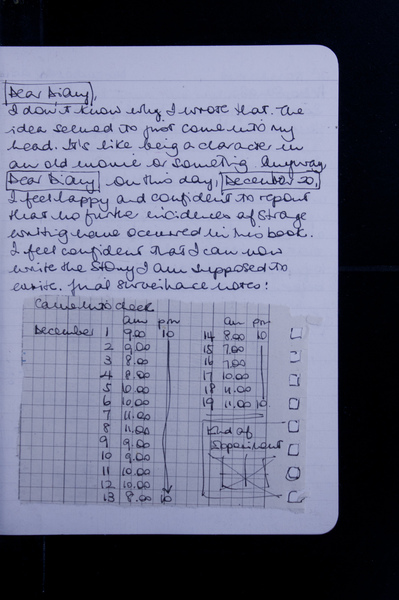 Dear Diary,
I don't know why I wrote that. The
idea seemed to just come into my
head. It's like being a character in
an old movie or something. Anyway,
Dear Diary on this day, December 20,
I feel happy and confident to report
that no further incidences of Strage
writing have occurred in this book.
I feel confident that I can now
write the story I am supposed to
write. final surveilace notes:
Came into check
am pm am pm
December 1 9.00 10 14 8.00 10
2 9.00 15 7.00
3 8.00 16 7.00
4 8.00 17 10.00
5 10.00 18 11.00
6 10.00 19 11.00 10
7 11.00
8 11.00 End of
9 9.00 Experiment
10 9.00
11 10.00
12 10.00
13 8.00 10